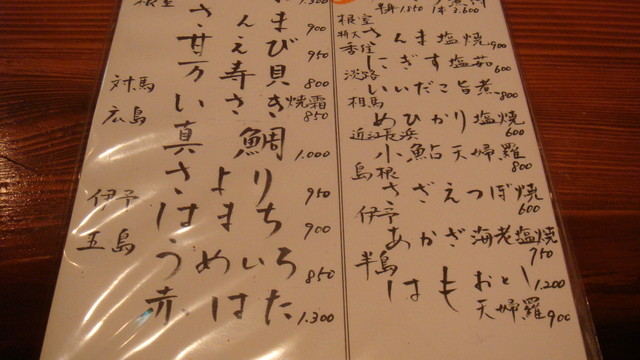 1.300
さんま 900
甘えび 950
万寿貝 800
対馬
いさき焼霜 850
広島
真鯛 1.000
さより 950
伊予
はまち 900
五島
うめいろ 850
赤はた 1.300
1850 1本 2.600
根室
特大さんま塩焼 900
香住
にぎす塩茹 600
淡路
いいだこ旨煮 800
相馬
めひかり塩焼 600
近江長浜
小鮎天婦羅 800
島根
さざえつぼ焼 600
伊予
あかざ海老塩焼 750
半島
はもおとし 1.200
天婦羅 900